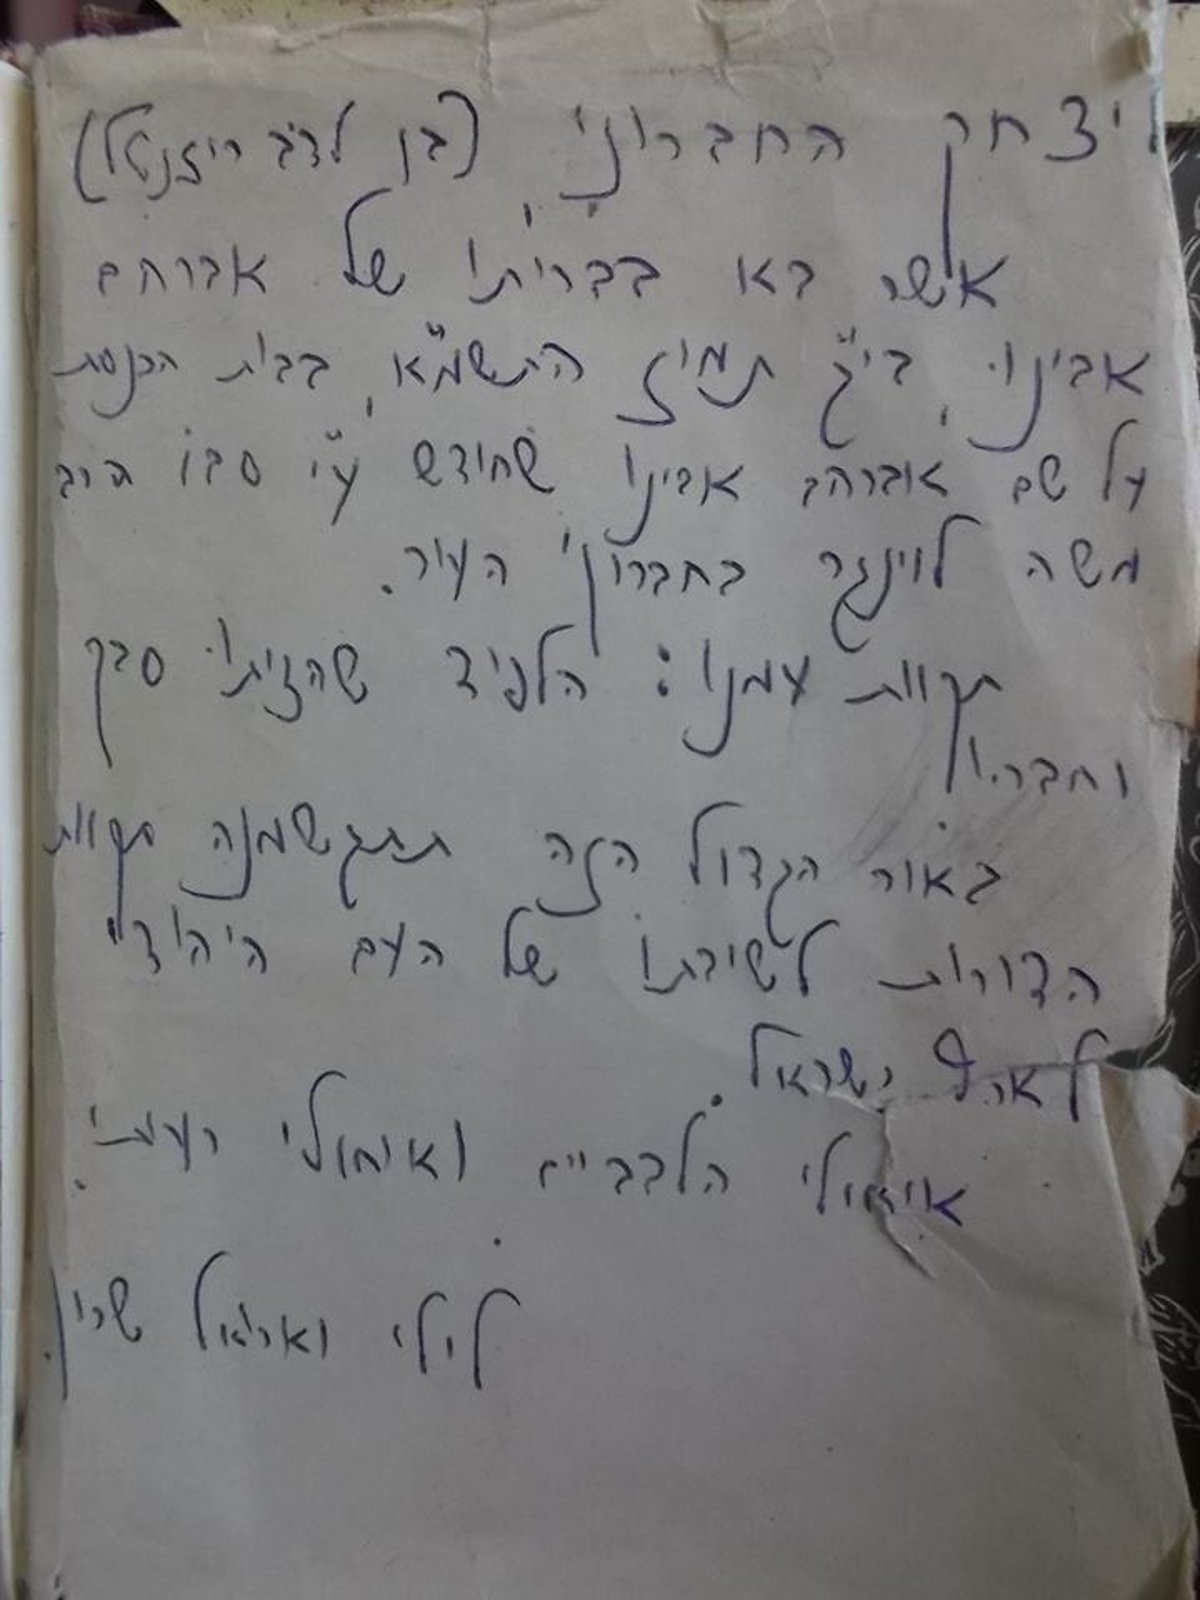 יצחק החברוני (בן לר'ב רוזנטל)
אשר בא בבריתו של אברהם
אבינו, בי"ג תמוז התשמ"א, בבית הכנסת
על שם אברהם אבינו שחודש ע"י סבו הרב
משה לוינגר בחברון העיר.
תקוות עמנו: הלפיד שהציתו סבך
וחבריו
באור הגדול הזה תתגשמנה תקוות
הדורות לשיבתו של העם היהודי
לארץ ישראל.
איחולי הלבביים ואיחולי רעיתי.
לילי ואריאל שרון.